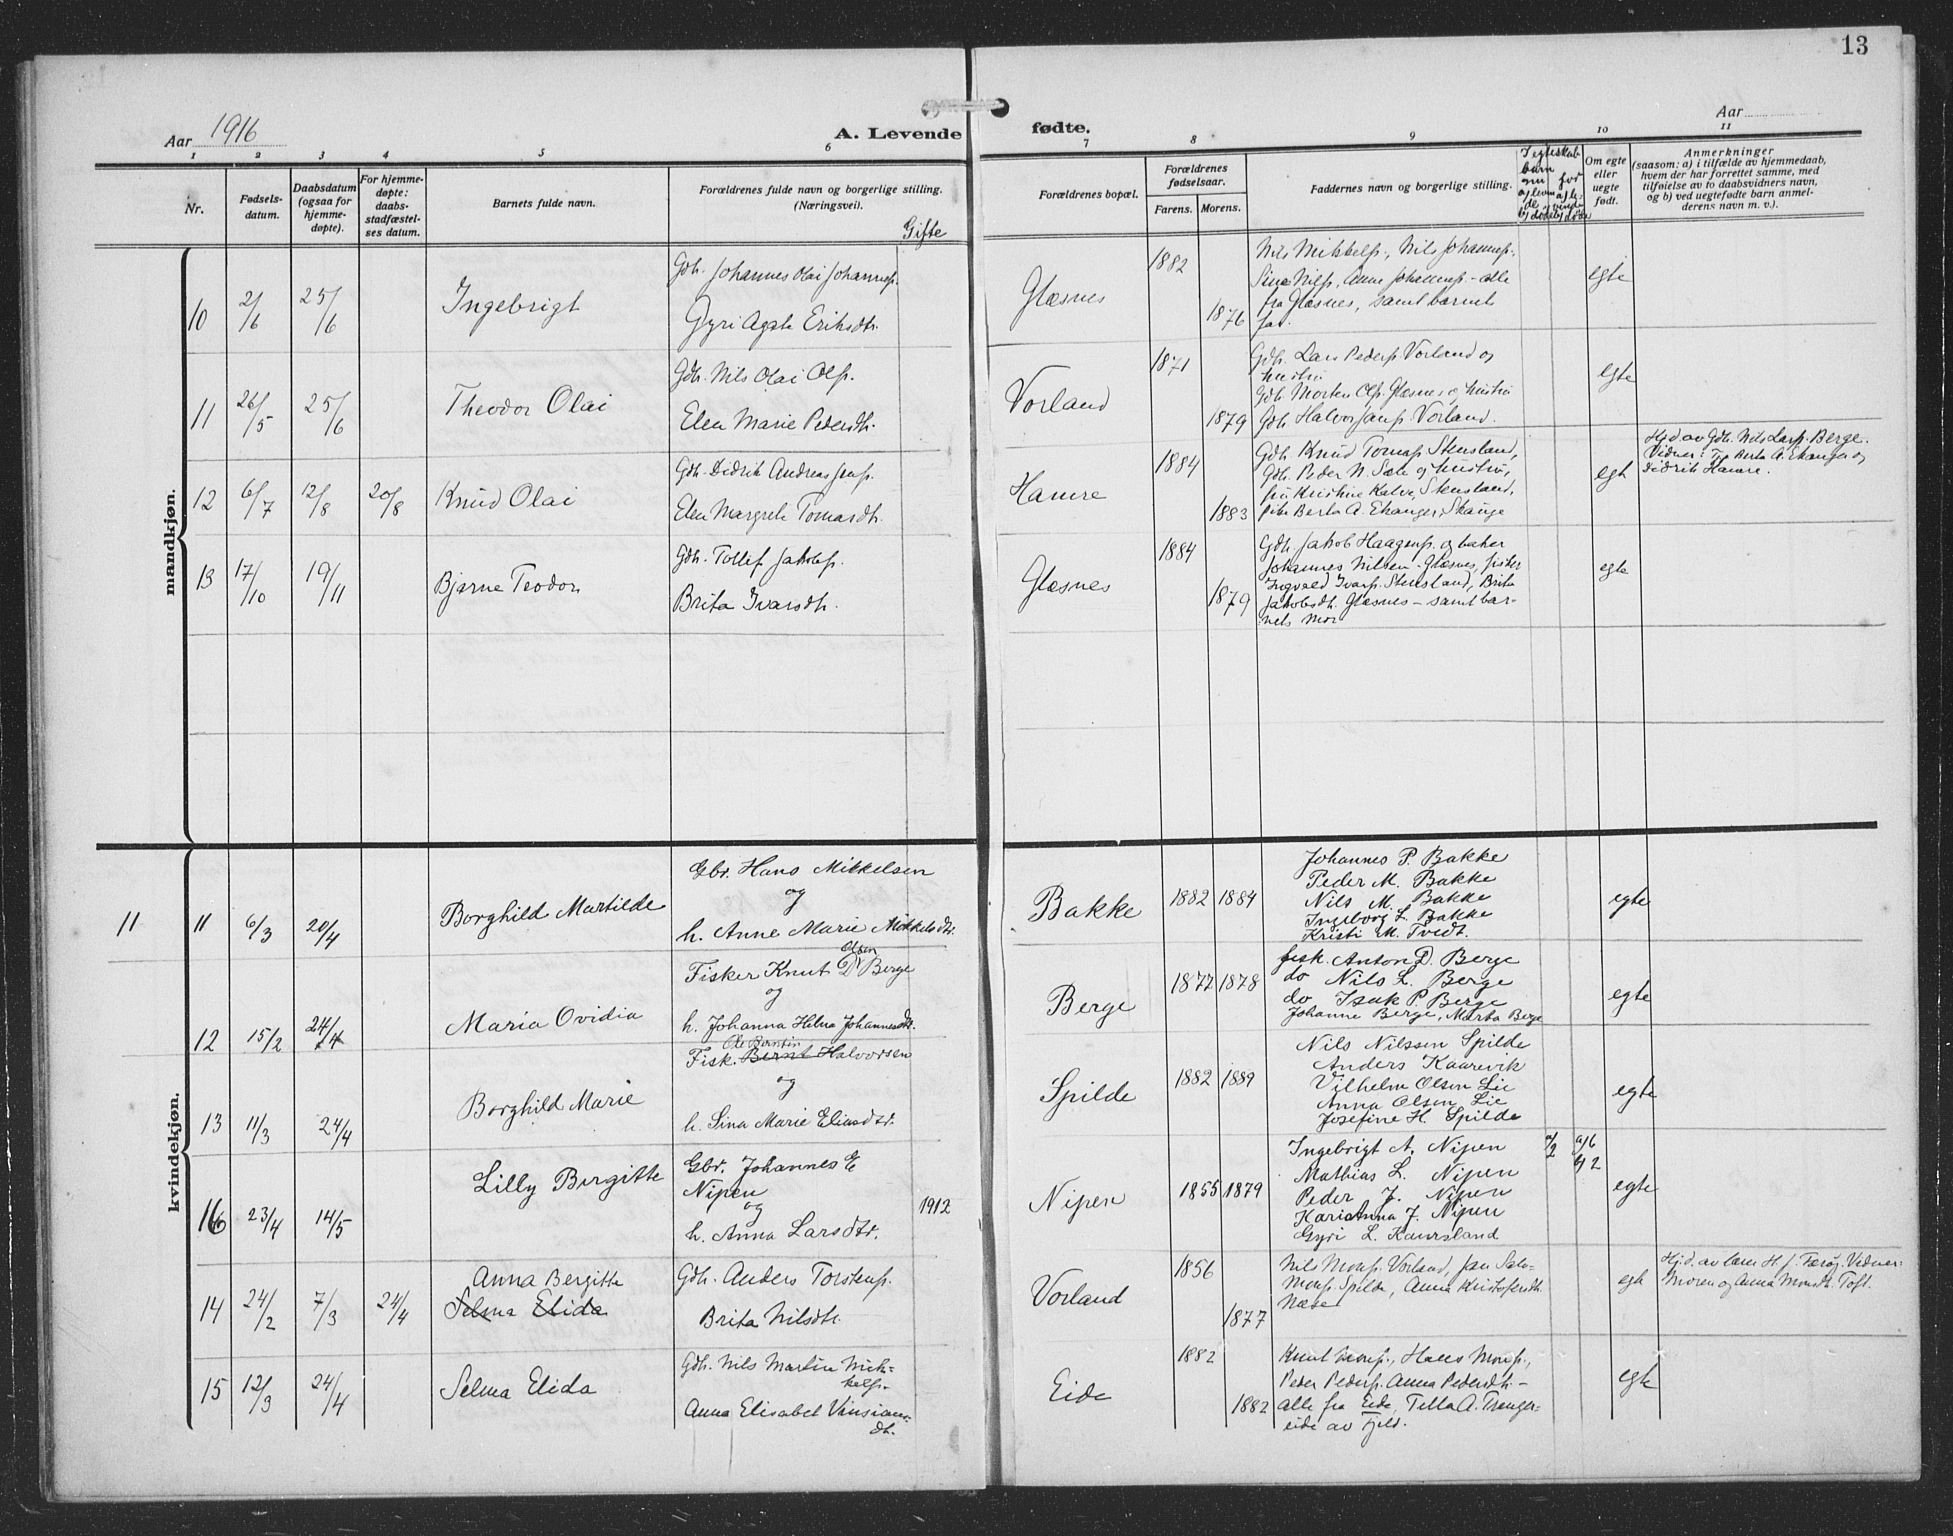 13
Aar 1916
A. Levende fødte.
Aar
1 2 3 4 5 6 7 8 9 10 11
Nr.
Fødsels-
datum.
Daabsdatum
(ogsaa for
hjemme-
døpte).
For hjemme-
døpte:
daabs-
stadfæstel-
ses datum.
Barnets fulde navn.
Forældrenes fulde navn og borgerlige stilling.
(Næringsvei).
Gifte
Forældrenes bopæl.
Forældrenes
fødselsaar.
Farens. Morens.
Faddernes navn og borgerlige stilling.
I egteskab
barn
Om egte
eller
uegte
født.
Anmerkninger
(saasom: a) i tilfælde av hjemmedaab,
hvem der har forrettet samme, med
tilføielse av to daabsvidners navn,
og b) ved uegtefødte barn anmel-
derens navn m. v.).
mandkjøn.
10 2/6 25/6 Ingebrigt
Gdh. Johannes Olai Johannesp.
Gyri Agate Eriksdtr.
Glæsnes 1882 1876
Nils Mikkelsp., Nils Johannesp.,
Sina Nilsp., Anna Johannesp. - alle
fra Glæsnes, samt barnets
far.
egte
11 26/5 25/6 Theodor Olai
Gdh. Nils Olai Olsp.
Elen Marie Pedersdtr.
Vorland 1871 1879
Gdh. Lars Pedersp. Vorland og
hustru
Gdh. Morten Olsp. Glæsnes og hustru
Gdh. Halvor Jansp. Vorland.
egte
12 6/7 12/8 20/8 Knud Olai
Gdh. Didrik Andreas Jensp.
Elen Margrete Tomasdtr.
Hamre 1884 1883
Gdh. Knud Tomasp. Stensland,
Gdh. Peder N. Sæle og hustru,
fru Kristine Kalve, Stensland,
Pike Berta A. Ekanger, Skauge
egte
Hjd. av Gdh. Nils Larsp. Berge.
Vidner: Berta A. Ekanger og
Didrik Hamre.
13 17/10 19/11 Bjarne Teodor
Gdh. Tollef Jakobsp.
Brita Ivarsdtr.
Glæsnes 1884 1879
Gdh. Jakob Haagensp. og baker
Johannes Nilsen Glæsnes, fisker
Ingvald Ivarsp. Stensland, Brita
Jakobsdtr. Glæsnes - samt bar-
nets mor
egte
kvindekjøn.
11 11 6/3 20/4 Borghild Martilde
Gbr. Hans Mikkelsen
og
h. Anne Marie Mikkelsdtr.
Bakke 1882 1884
Johannes P. Bakke
Peder M. Bakke
Nils M. Bakke
Ingeborg L. Bakke
Kristi M. Tvedt.
egte
12 15/2 24/4 Maria Ovidia
Olsen
Fisker Knut D. Berge
og
h. Johanna Helna Johannesdtr.
Berge 1877 1878
fisk. Anton D. Berge
do Nils L. Berge
do Isak P. Berge
Johanne Berge, Marta Berge
egte
13 11/3 24/4 Borghild Marie
Ole Berntin
Fisk. Bernt Halvorsen
og
h. Sina Marie Eliasdtr.
Spilde 1882 1889
Nils Nilssen Spilde
Anders Kaarevik
Vilhelm Olsen Lie
Anna Olsen Lie
Josefine H. Spilde
egte
16 23/4 14/5 Lilly Birgitte
Gbr. Johannes E
Nipen
og
h. Anna Larsdtr.
1912
Nipen 1855 1879
Ingebrigt A. Nipen
Mathias L. Nipen
Peder J. Nipen
Karianna J. Nipen
Gyri L. Kaursland
a/2 a/6
b/2
egte
14 24/2 7/3 24/4 Anna Bergitte
Selma Elida
Gdh. Anders Torstensp.
Brita Nilsdtr.
Vorland 1856 1877
Nils Monsp. Vorland, Jan Salo-
monsp. Spilde, Anna Kristofersdtr.
Næse
egte
Hjd. av lærer H. J. Færøy. Vidner:
Moren og Anna Monsdtr. Toft.
15 12/3 24/4 Selma Elida
Gdh. Nils Martin Mick-
kelsp.
Anna Elisabet Vinsians-
dtr.
Eide 1882 1882
Knut Monsp., Hans Monsp.,
Peder Pedersp. Anna Pedersdtr. -
alle fra Eide, Tella A. Tranger-
eide av Fjeld.
egte